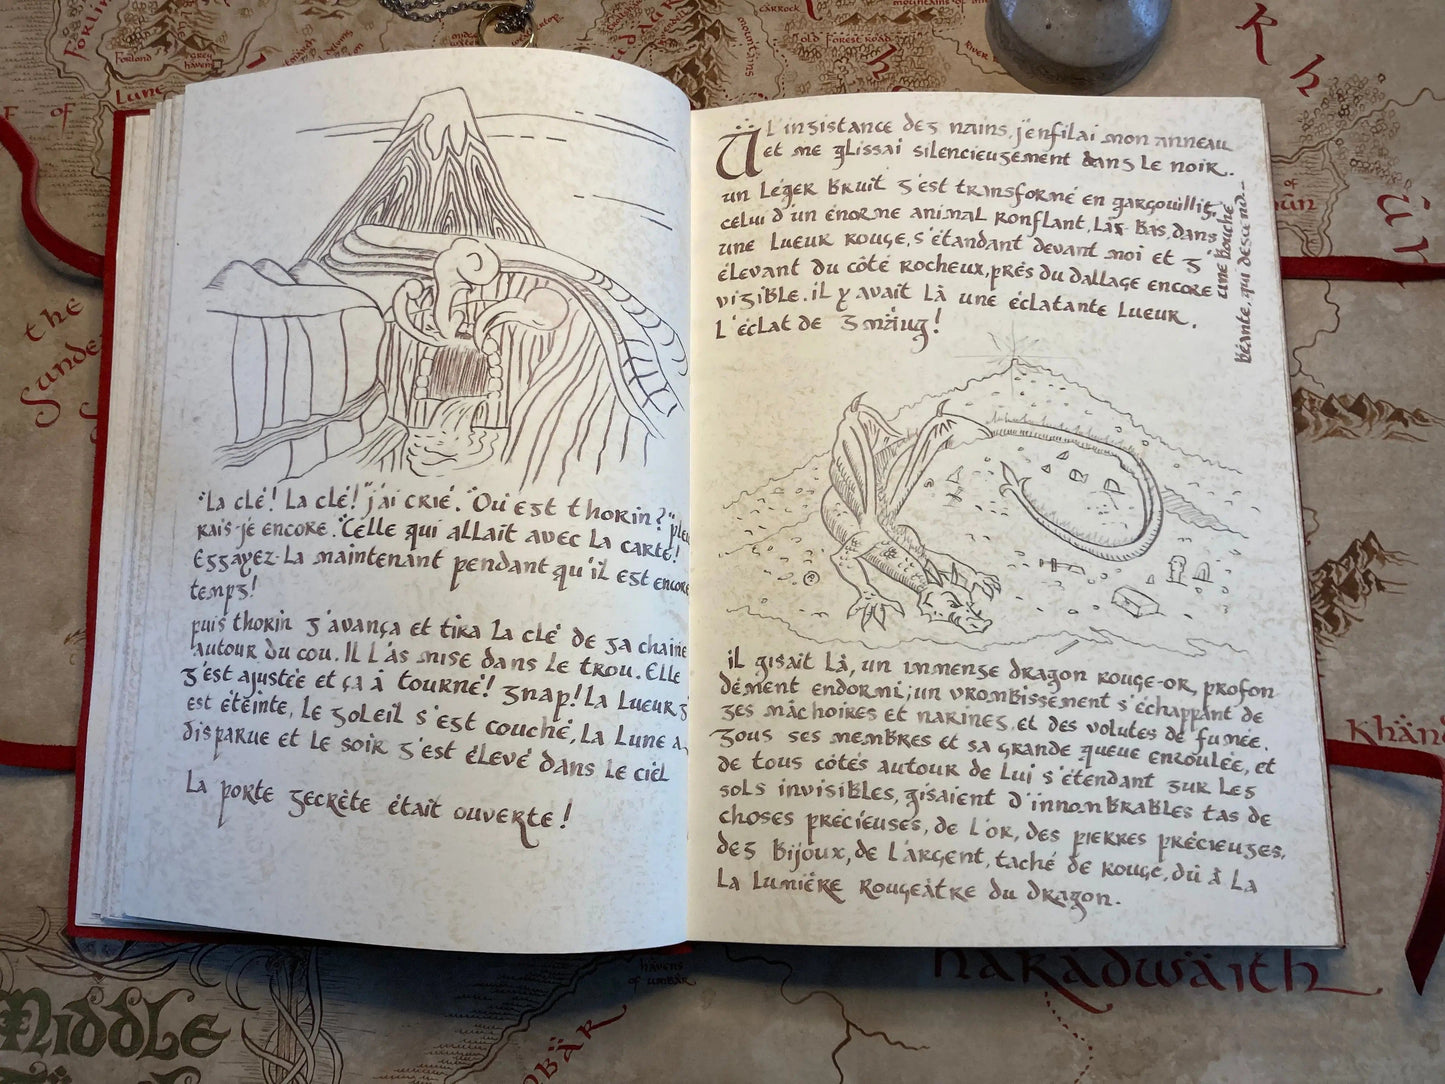 "La clé! La clé!" j'ai crié. "Où est thorin?" pleu
rais-je encore. "Celle qui allait avec la carte!
Essayez-la maintenant pendant qu'il est encore
temps!
puis thorin s'avança et tira la clé de sa chaine
autour du cou. Il l'as mise dans le trou. Elle
s'est ajustée et ça à tourné! Snap! La lueur s'
est éteinte, le soleil s'est couché, la lune a
disparue et le soir s'est élevé dans le ciel
La porte secrète était ouverte!
À l'insistance des nains, j'enfilai mon anneau
et me glissai silencieusement dans le noir.
un léger bruit s'est transformé en gargouillis,
celui d'un énorme animal ronflant. Làs-bas, dans
une lueur rouge, s'étandant devant moi et s'
élevant du côté rocheux, près du dallage encore
visible. il y avait là une éclatante lueur.
l'éclat de Smäug!
une bouche
béante, qui descend...
il gisait là, un immense dragon rouge-or, profon
dément endormi; un vrombissement s'échappant de
ses mâchoires et narines, et des volutes de fumée.
Sous ses membres et sa grande queue enroulée, et
de tous côtés autour de lui s'étendant sur les
sols invisibles, gisaient d'innombrables tas de
choses précieuses, de l'or, des pierres précieuses,
des bijoux, de l'argent, taché de rouge, dû à la
la lumière rougeâtre du dragon.
Forlond
Grey
havens
of
Lune
Carrock
old Forest road
mountains of
R
h
û
n
of
the
Sunde
Khänd
haradwäith
havens
of umbär
Middle